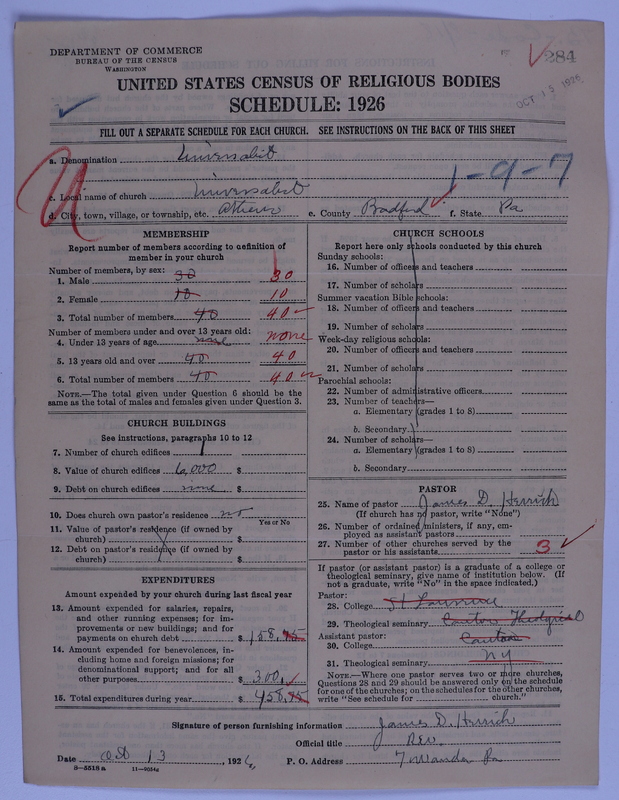 DEPARTMENT OF COMMERCE
BUREAU OF THE CENSUS
WASHINGTON
284
OCT 13 1926
UNITED STATES CENSUS OF RELIGIOUS BODIES
SCHEDULE: 1926
FILL OUT A SEPARATE SCHEDULE FOR EACH CHURCH. SEE INSTRUCTIONS ON THE BACK OF THIS SHEET
a. Denomination Universalist
U
1-9-7
c. Local name of church Universalist
d. City, town, village, or township, etc. Athens e. County Bradford f. State Pa
MEMBERSHIP
Report number of members according to definition of
member in your church
Number of members, by sex:
1. Male 30 30
2. Female 10 10
3. Total number of members 40 40
Number of members under and over 13 years old:
4. Under 13 years of age none none
5. 13 years old and over 40 40
6. Total number of members 40 40
NOTE.—The total given under Question 6 should be
same as the total of males and females given under Question 3.
CHURCH BUILDINGS
See instructions, paragraphs 10 to 12
7. Number of church edifices 1
8. Value of church edifices 6,000 $
9. Debt on church edifices none $
10. Does church own pastor's residence no
Yes or No
11. Value of pastor's residence (if owned by
church) $
12. Debt on pastor's residence (if owned by
church) $
EXPENDITURES
Amount expended by your church during last fiscal year
13. Amount expended for salaries, repairs,
and other running expenses; for im-
provements or new buildings; and for
payments on church debt $ 158.
14. Amount expended for benevolences, in-
cluding home and foreign missions; for
denominational support; and for all
other purposes $ 300.
15. Total expenditures during year $ 458.
CHURCH SCHOOLS
Report here only schools conducted by this church
Sunday schools:
16. Number of officers and teachers
17. Number of scholars
Summer vacation Bible schools:
18. Number of officers and teachers
19. Number of scholars
Week-day religious schools:
20. Number of officers and teachers
21. Number of scholars
Parochial schools:
22. Number of administrative officers
23. Number of teachers—
a. Elementary (grades 1 to 8)
b. Secondary
24. Number of scholars—
a. Elementary (grades 1 to 8)
b. Secondary
PASTOR
25. Name of pastor James D. Herrick
(If church has no pastor, write "None")
26. Number of ordained ministers, if any, em-
ployed as assistant pastors
27. Number of other churches served by the
pastor or his assistants 3
If pastor (or assistant pastor) is a graduate of a college or
theological seminary, give name of institution below. (If
not a graduate, write "No" in the space indicated.)
Pastor:
28. College St Lawrence
29. Theological seminary Canton
Assistant pastor:
30. College Canton
31. Theological seminary NY
NOTE.—Where one pastor serves two or more churches,
Questions 28 and 29 should be answered only on the schedule
for one of the churches; on the schedules for the other churches,
write "See schedule for church."
Signature of person furnishing information James D. Herrick
Official title Rev.
Date Oct 13, 1926 P. O. Address Towanda Pa
8-5518 a 11-9054a